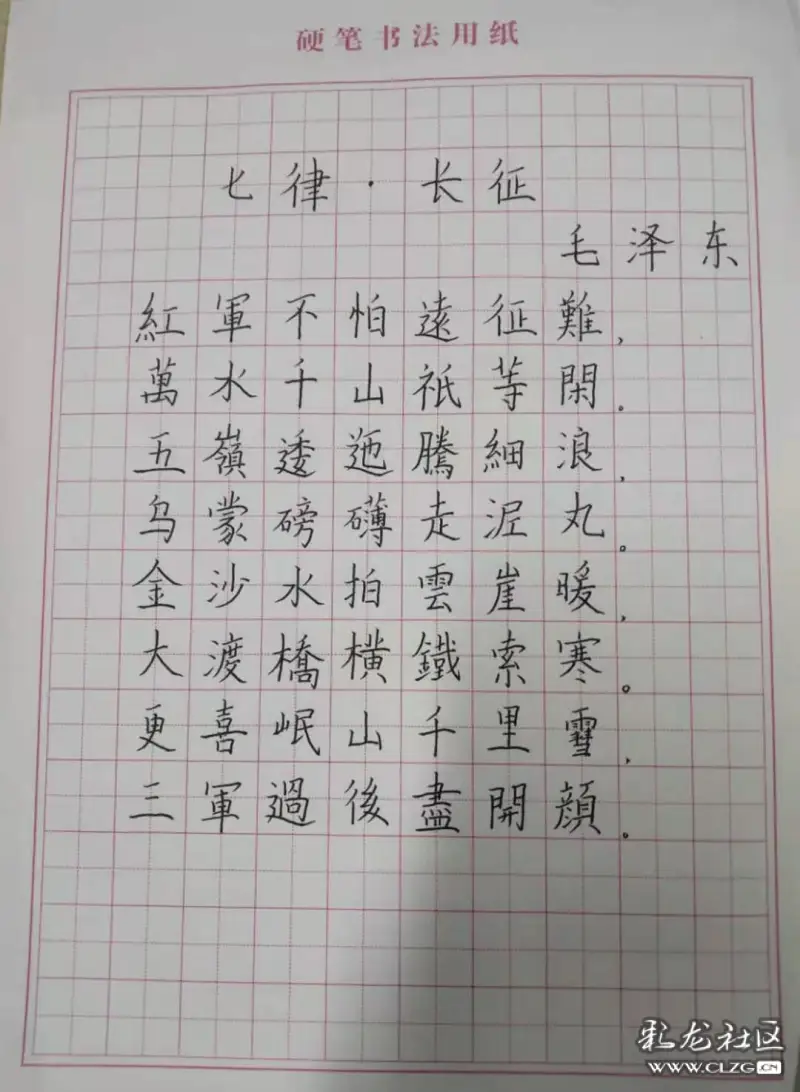 硬笔书法用纸
七律·长征
毛泽东
紅軍不怕遠征難，
萬水千山祇等閑。
五嶺逶迤騰細浪，
乌蒙磅礴走泥丸。
金沙水拍雲崖暖，
大渡橋横鐵索寒。
更喜岷山千里雪，
三軍過後盡開顔。
彩龙社区
WWW.CLZG.CN